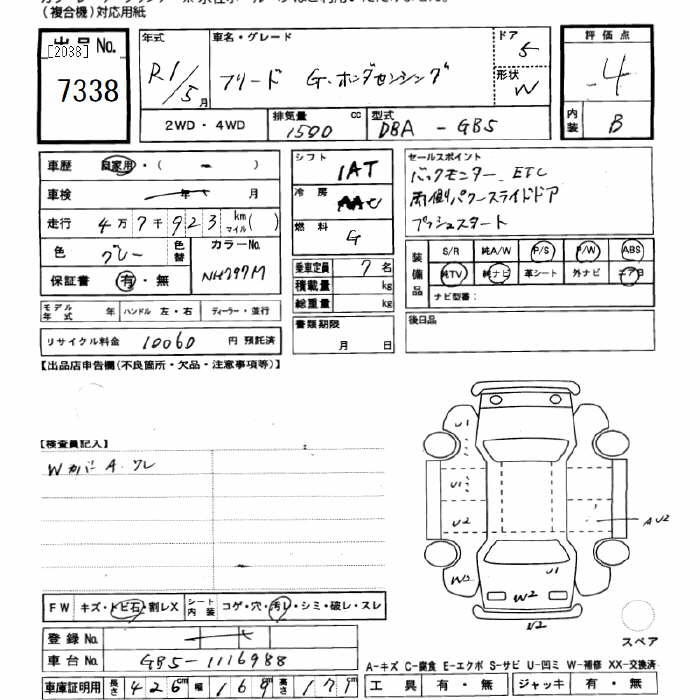 (複合機)対応用紙
出品No.
[2038]
7338
年式
R1/5月
車名・グレード
フリード G・ホンダセンシング
ドア
5
形状
W
評価点
4
内装
B
2WD・4WD
排気量 1500 cc
型式 DBA - GB5
車歴 自家用・( - )
車検 年 月
走行 4万7千923 km マイル( )
色 グレー 色替
カラーNo. NH797M
保証書 有・無
シフト 1AT
冷房 AAC
燃料 G
乗車定員 7名
積載量 kg
総重量 kg
セールスポイント
バックモニター ETC
両側パワースライドドア
プッシュスタート
装備品
S/R 純A/W P/S P/W ABS
純TV 純ナビ 革シート 外ナビ エアB
ナビ型番:
モデル年式 年 ハンドル 左・右 ディーラー・並行
リサイクル料金 10060 円 預託済
書類期限
月 日
後日品
【出品店申告欄(不良箇所・欠品・注意事項等)】
【検査員記入】
Wカバー A. ワレ
U1
U1
U2
W2
U1
W2
U2
AU2
FW キズ・トビ石・割レX シート内装 コゲ・穴・汚レ・シミ・破レ・スレ
登録No.
車台No. GB5-1116988
車庫証明用 長さ 426cm 幅 169cm 高さ 171cm
スペア
A-キズ C-腐食 E-エクボ S-サビ U-凹ミ W-補修 XX-交換済
工具 有・無 ジャッキ 有・無